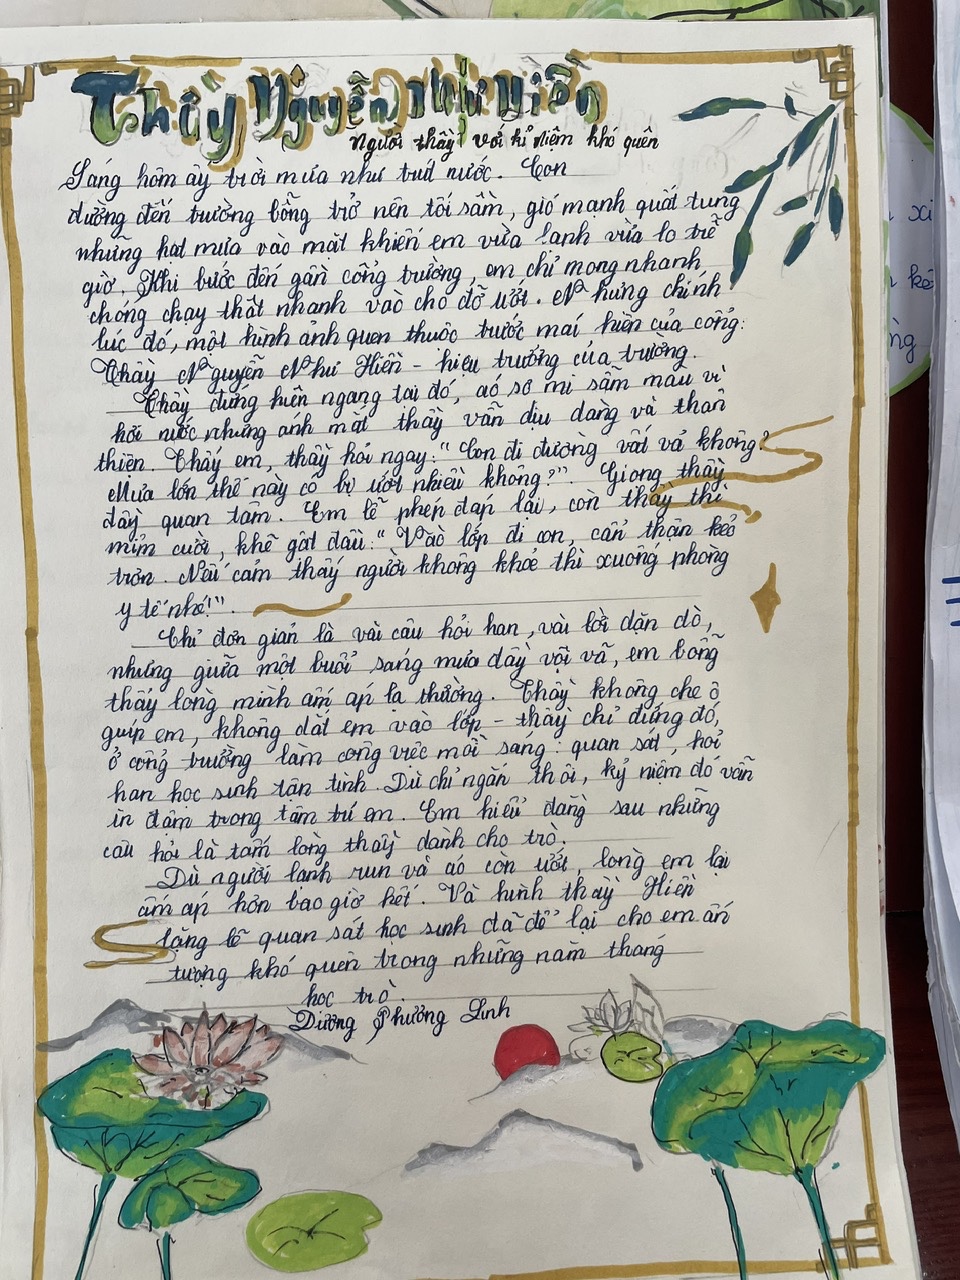 Thầy Nguyễn Như Hiền
Người thầy với kỉ niệm khó quên
Sáng hôm ấy trời mưa như trút nước. Con
đường đến trường bỗng trở nên tối sầm, gió mạnh quất tung
những hạt mưa vào mặt khiến em vừa lạnh vừa lo trễ
giờ. Khi bước đến gần cổng trường, em chỉ mong nhanh
chóng chạy thật nhanh vào cho đỡ ướt. Nhưng chính
lúc đó, một hình ảnh quen thuộc trước mái hiên của cổng:
Thầy Nguyễn Như Hiền - hiệu trưởng của trường.
Thầy đứng hiên ngang tại đó, áo sơ mi sẫm màu vì
hơi nước nhưng ánh mắt thầy vẫn dịu dàng và thân
thiện. Thấy em, thầy hỏi ngay: "Con đi đường vất vả không?
Mưa lớn thế này có bị ướt nhiều không?". Giọng thầy
đầy quan tâm. Em lễ phép đáp lại, còn thầy thì
mỉm cười, khẽ gật đầu: "Vào lớp đi con, cẩn thận kẻo
trơn. Nếu cảm thấy người không khỏe thì xuống phòng
y tế nhé!".
Chỉ đơn giản là vài câu hỏi han, vài lời dặn dò,
nhưng giữa một buổi sáng mưa đầy vội vã, em bỗng
thấy lòng mình ấm áp lạ thường. Thầy không che ô
giúp em, không dắt em vào lớp - thầy chỉ đứng đó,
ở cổng trường làm công việc mỗi sáng: quan sát, hỏi
han học sinh tận tình. Dù chỉ ngắn thôi, kỷ niệm đó vẫn
in đậm trong tâm trí em. Em hiểu đằng sau những
câu hỏi là tấm lòng thầy dành cho trò.
Dù người lạnh run và áo còn ướt, lòng em lại
ấm áp hơn bao giờ hết. Và hình thầy Hiền
lặng lẽ quan sát học sinh đã để lại cho em ấn
tượng khó quên trong những năm tháng
học trò.
Dương Phương Linh
xi
kẻ